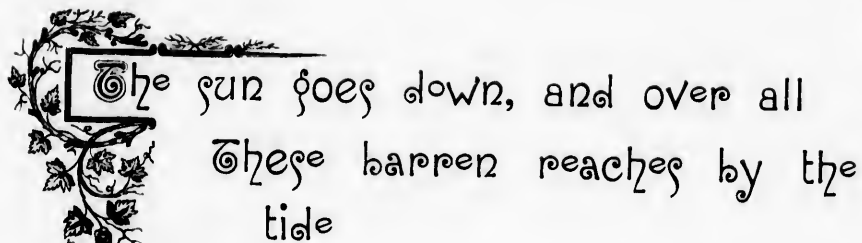 The sun goes down, and over all
These barren reaches by the
tide